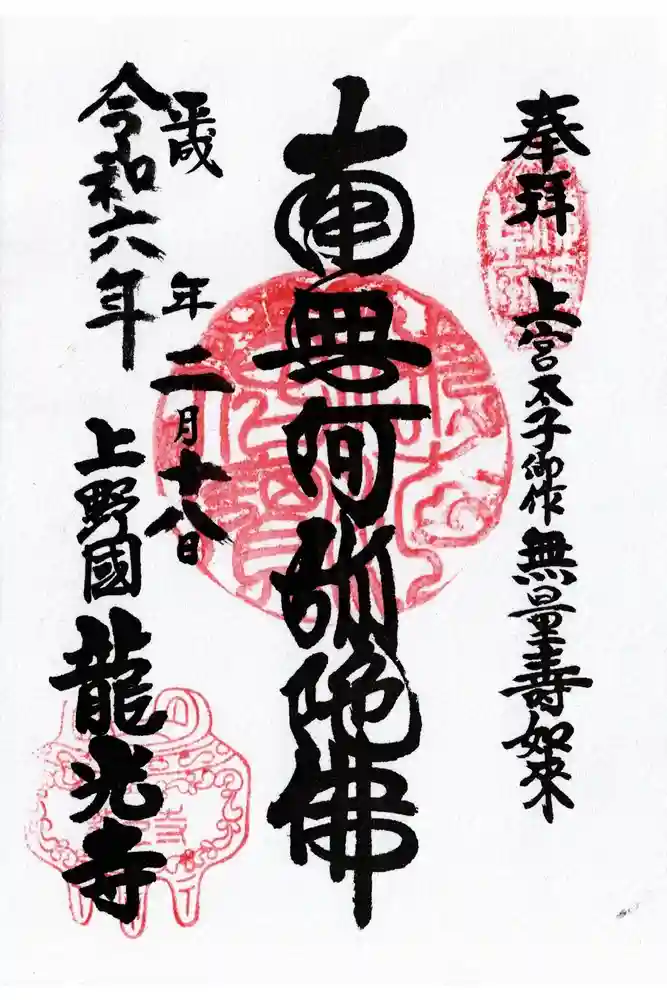 奉拝 上宮太子御作 無量壽如来
南無阿弥陀佛
平成 年 二月十八日
令和六年
上野國 龍光寺